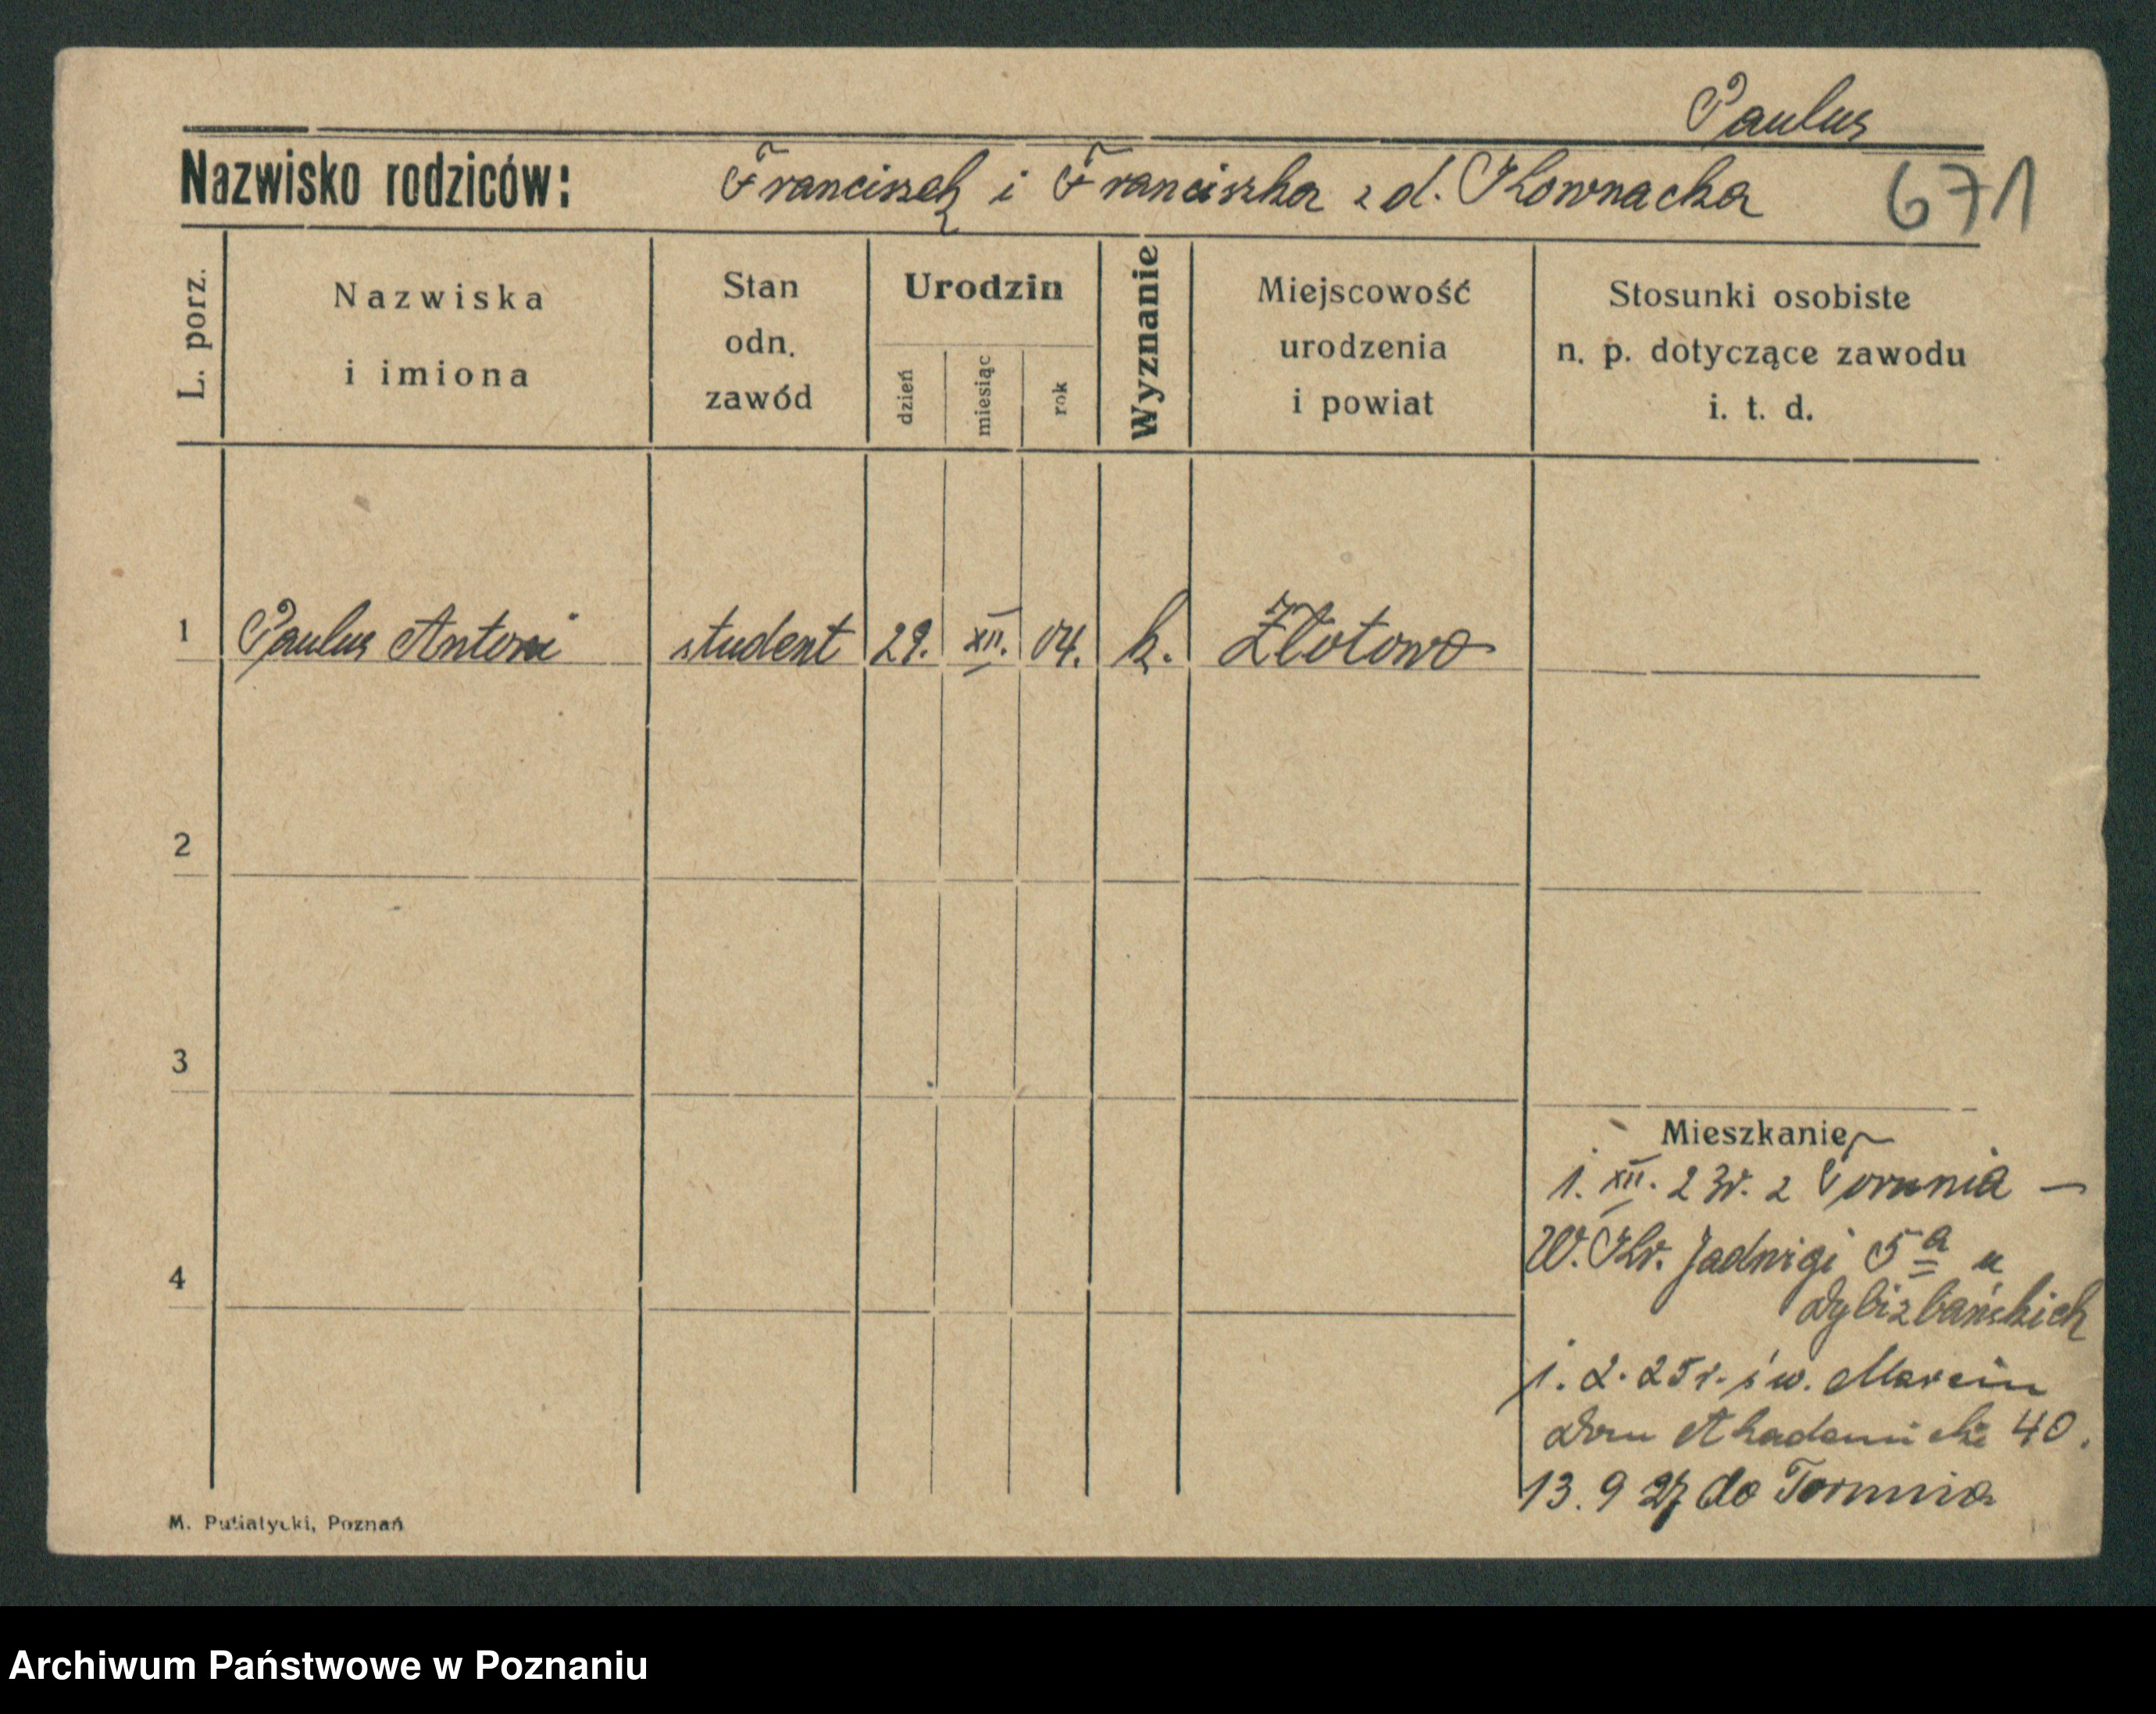 Paulus
Nazwisko rodziców: Franciszek i Franciszka z d. Kownacka 671
L. porz.
Nazwiska i imiona
Stan odn. zawód
Urodzin
dzień miesiąc rok
Wyznanie
Miejscowość urodzenia i powiat
Stosunki osobiste n. p. dotyczące zawodu i. t. d.
1 Paulus Antoni student 29. XII. 04. k. Złotowo
2
3
Mieszkanie
1. XII. 23r. z Torunia —
W. Kr. Jadwigi 5a u
4
Dybizbańskich
1. 2. 25r. św. Marcin
Dom Akademicki 40.
13. 9 27 do Torunia
M. Putiatycki, Poznań
Archiwum Państwowe w Poznaniu